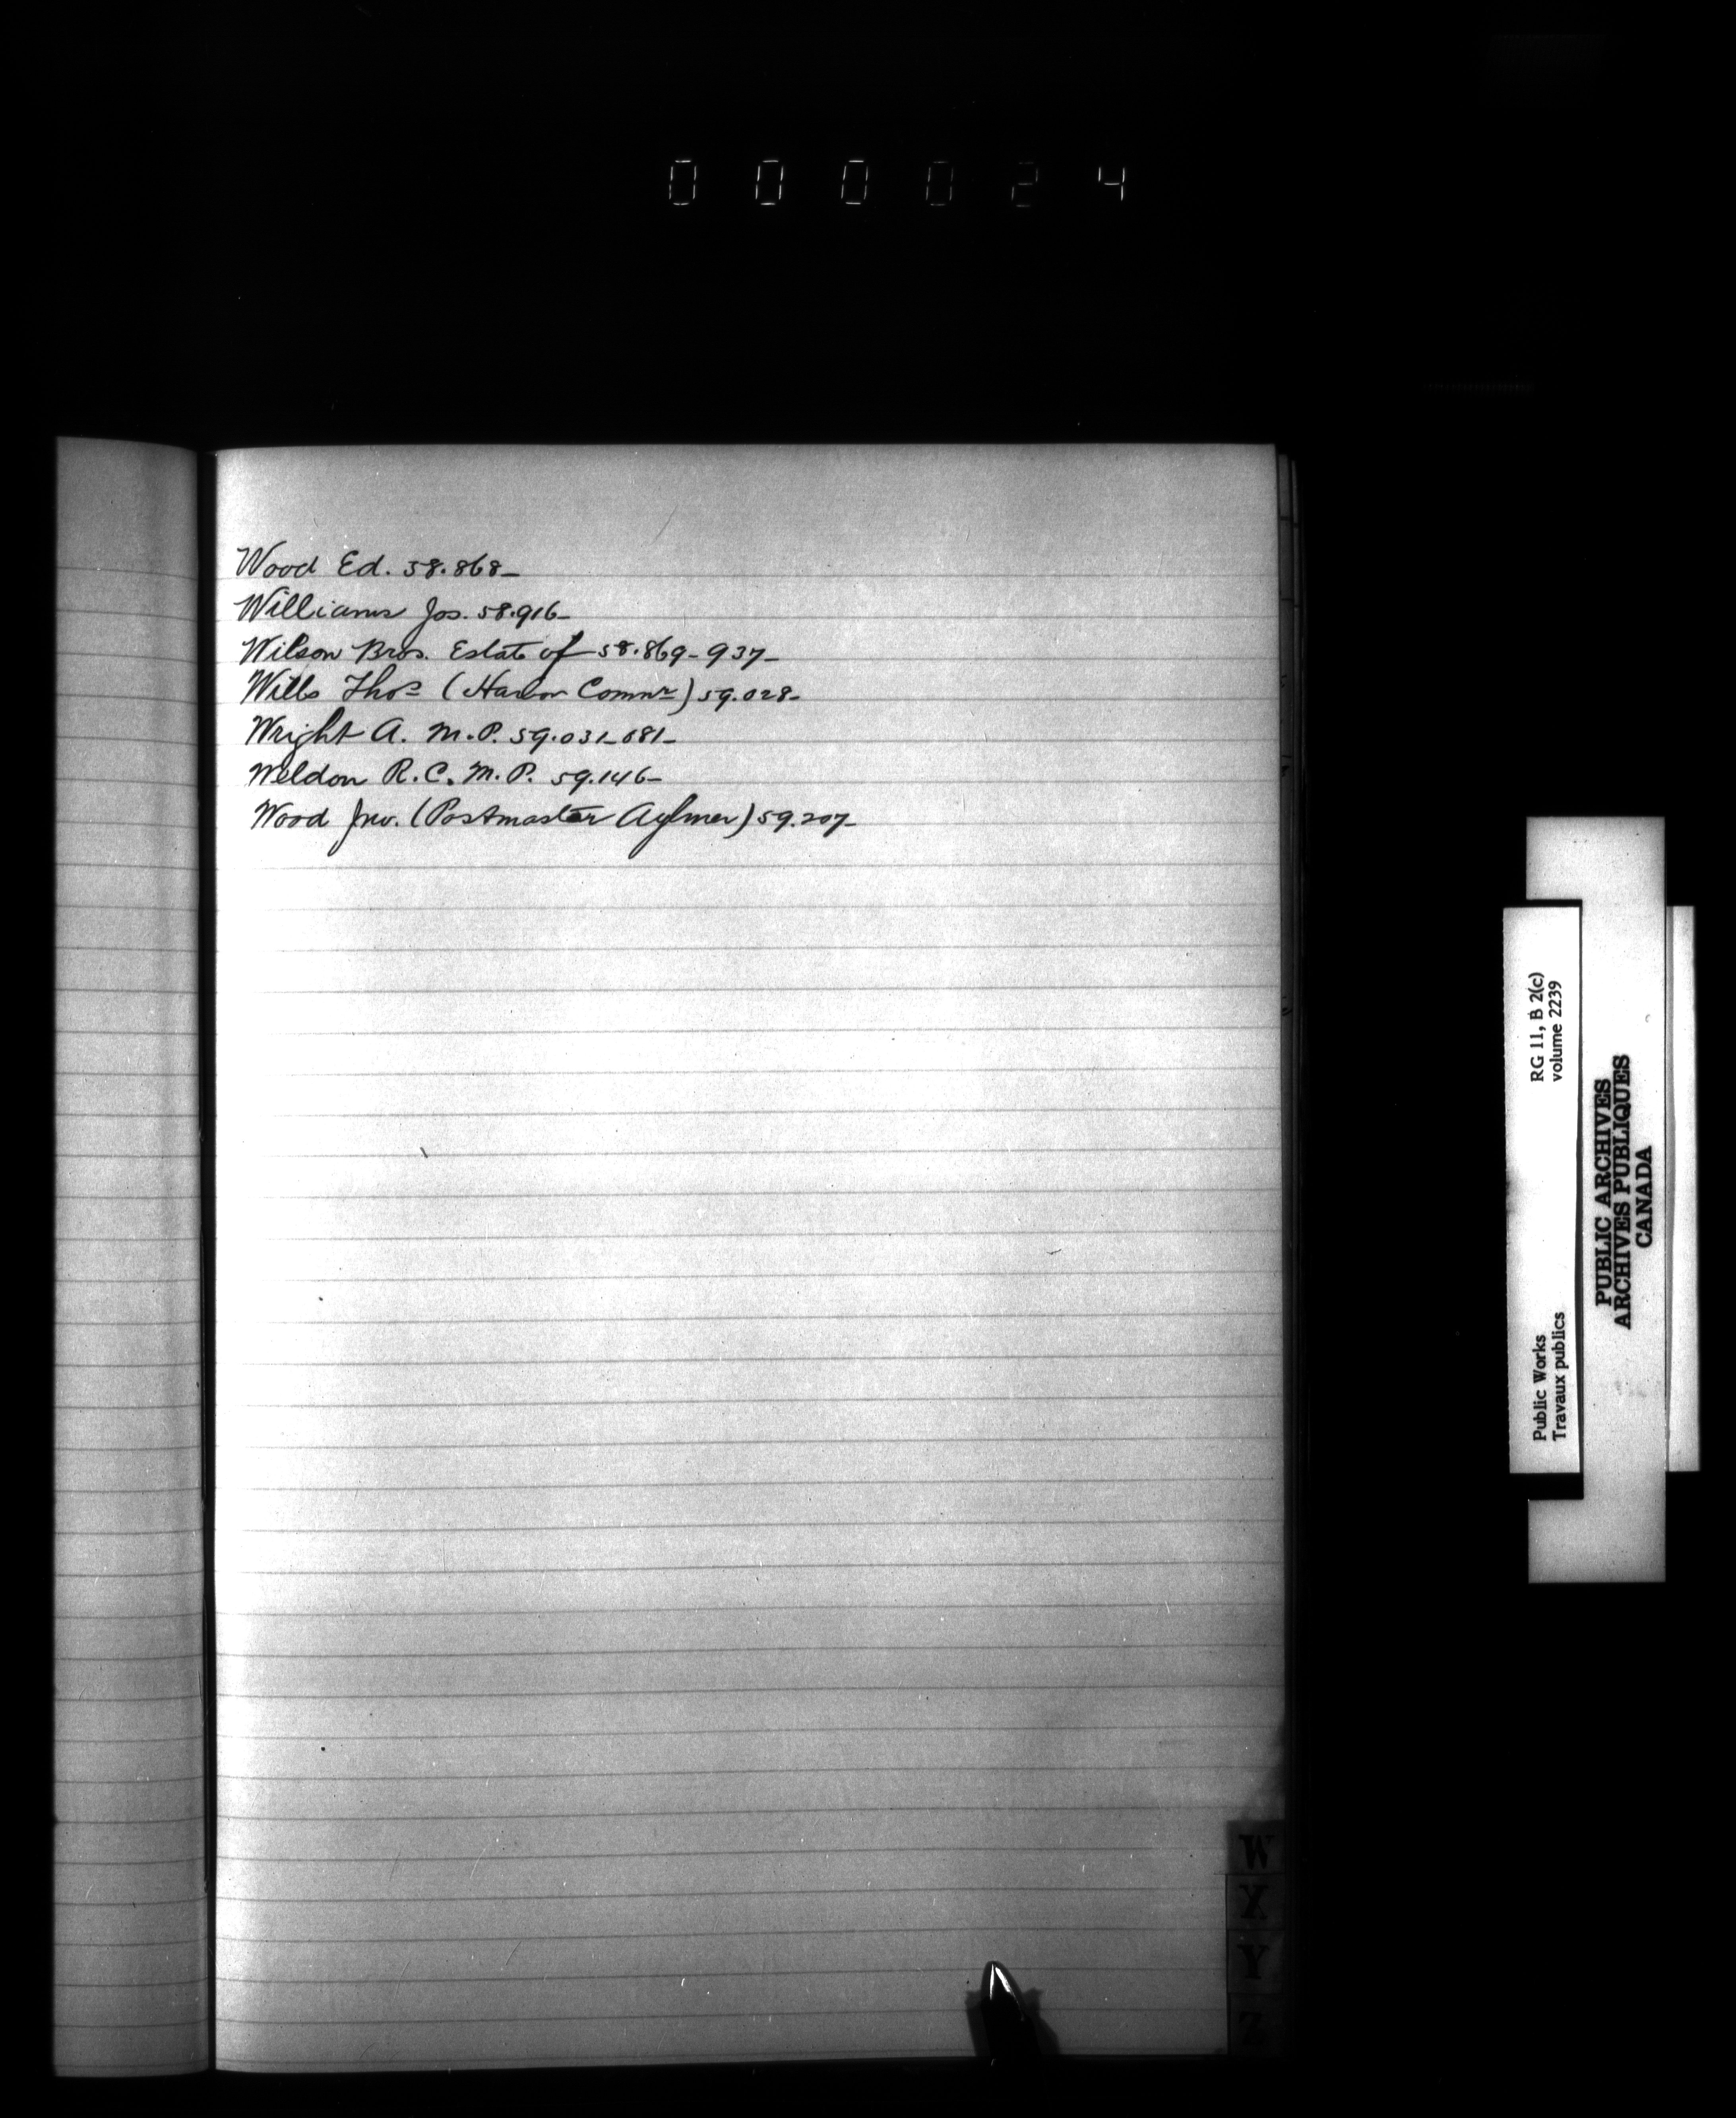 000024
Wood Ed. 58.868-
Williams Jos. 58.916-
Wilson Bros. Estate of 58.869-937-
Wills Thos (Harbor Commr) 59.028-
Wright A. M.P. 59.031-681-
Weldon R.C. M.P. 59.146-
Wood Jno. (Postmaster Aylmer) 59.207-
W
X
Y
Z
Public Works
Travaux publics
RG 11, B 2(c)
volume 2239
PUBLIC ARCHIVES
ARCHIVES PUBLIQUES
CANADA